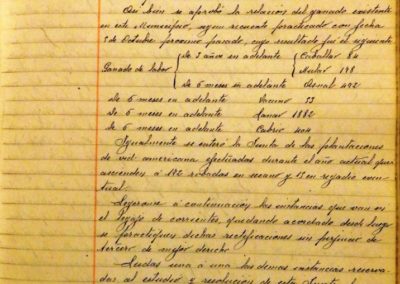 Así bien se aprobó la relación del ganado existente
en este Municipio, según recuento practicado con fecha
5 de Octubre proximo pasado, cuyo resultado fué el siguiente
Ganado de labor { de 3 años en adelante { Caballar 84
Mular 198
de 6 meses en adelante Asnal 492
de 6 meses en adelante Vacuno 53
de 6 meses en adelante Lanar 1882
de 6 meses en adelante Cabrio 404
Igualmente se enteró la Junta de las plantaciones
de vid americana efectuadas durante el año actual que
ascienden á 192 robadas en secano y 13 en regadio even
tual.
Leyeronse á continuación las instancias que van en
el legajo de corrientes, quedando acordado desde luego
se practiquen dichas rectificaciones sin perjuicio de
tercero de mejor derecho
Leidas una á una las demas instancias reserva
das al estudio y resolución de esta Junta